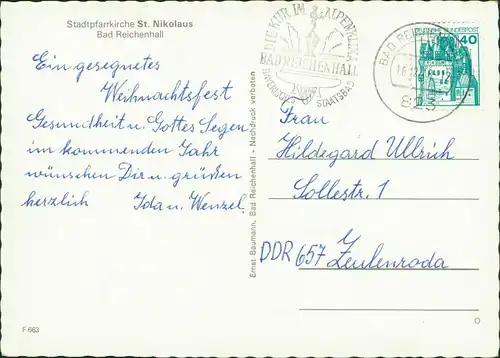 Stadtpfarrkirche St. Nikolaus
Bad Reichenhall
Ein gesegnetes
Weihnachtsfest
Gesundheit u. Gottes Segen
im kommenden Jahr
wünschen Dir u. grüßen
herzlich Ida u. Wenzel.
F 663
Ernst Baumann, Bad Reichenhall - Nachdruck verboten
DIE KUR IM ALPENKLIMA
BAD REICHENHALL
STAATSBAD
BAD REICHENHALL
823
40
Frau
Hildegard Ullrich
Sollestr. 1
DDR 657 Zeulenroda